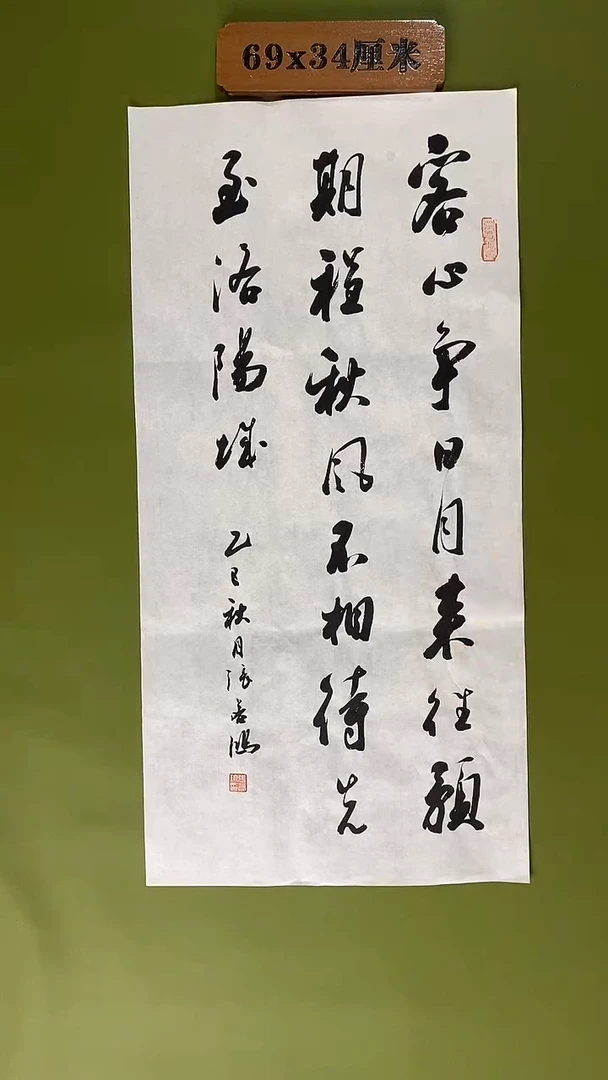 69x34厘米
客心争日月来往預
期程秋风不相待先
至洛陽城
乙巳秋月张若鸿